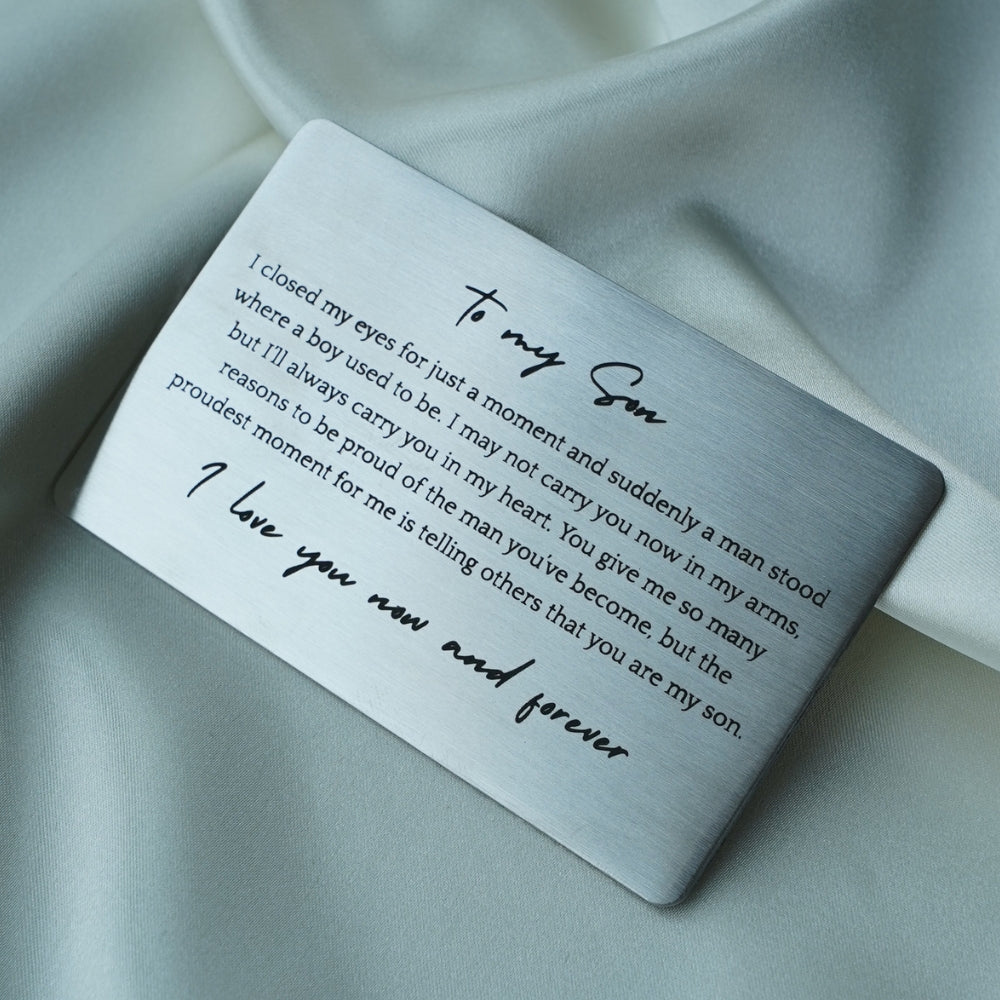 To my Son
I closed my eyes for just a moment and suddenly a man stood
where a boy used to be. I may not carry you now in my arms,
but I'll always carry you in my heart. You give me so many
reasons to be proud of the man you've become, but the
proudest moment for me is telling others that you are my son.
I love you now and forever